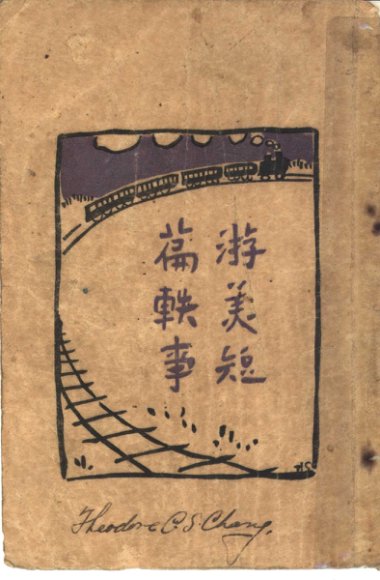 游美短
篇軼事
Theodore C. S. Chang.